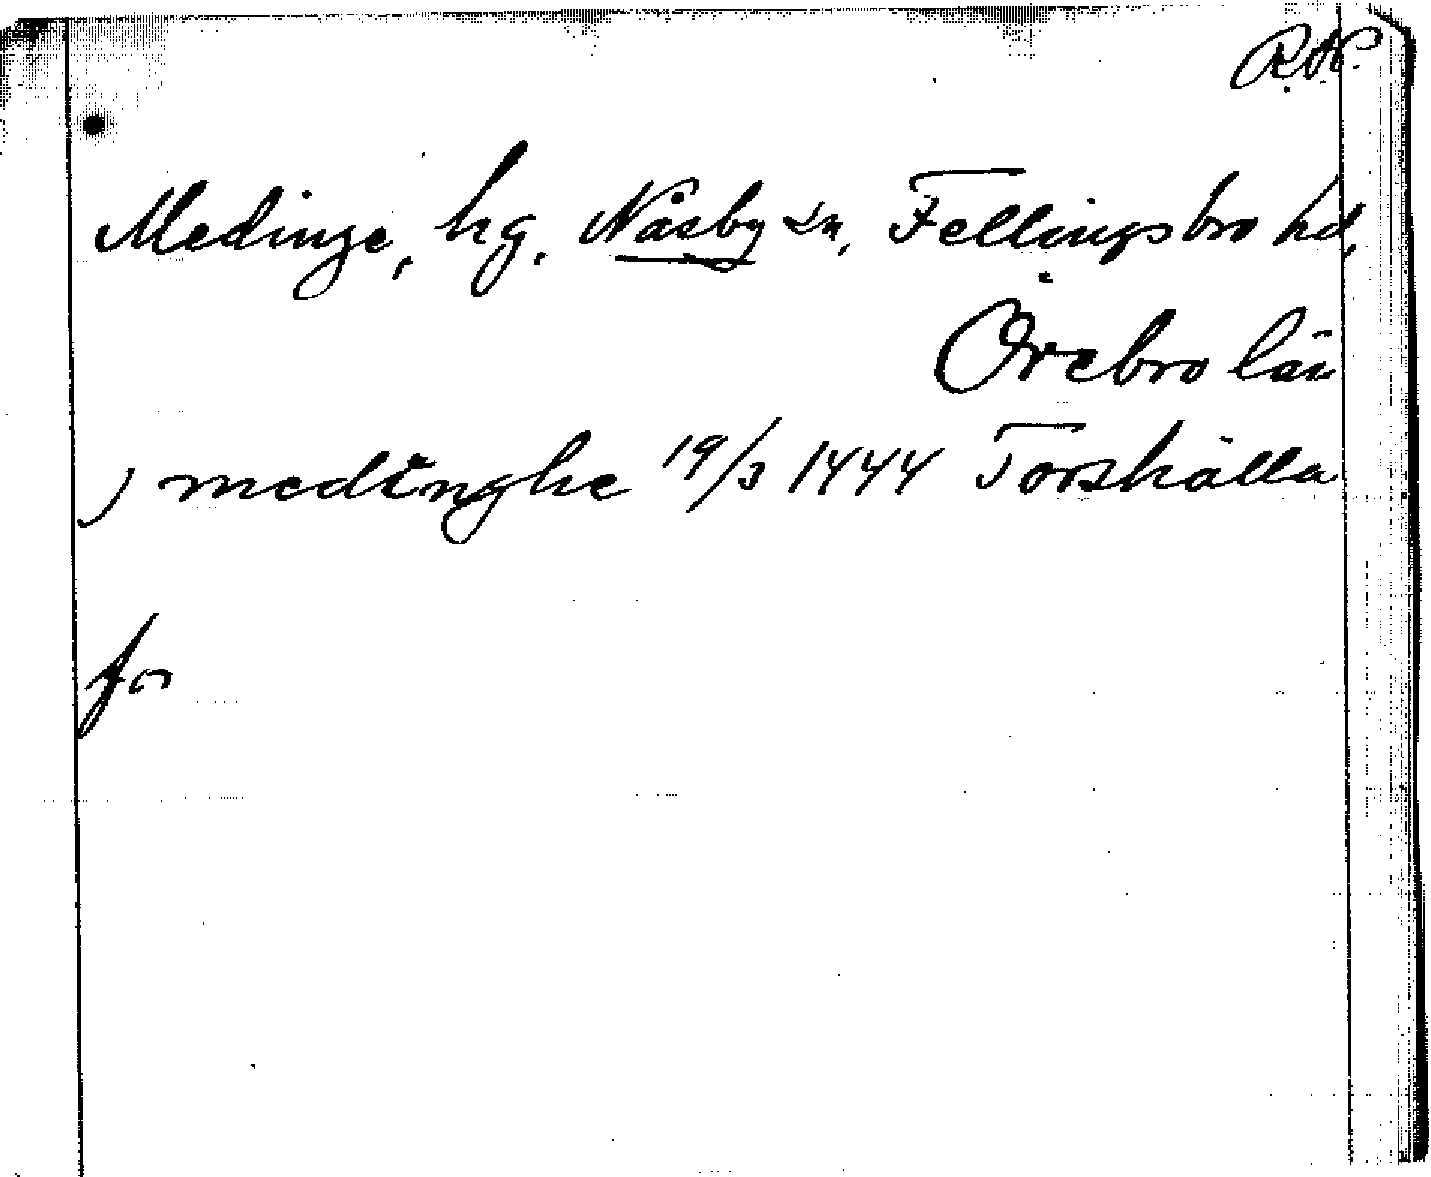 R.A.
Medinge, hg. Näsby sn, Fellingsbro hd,
Örebro län
j medinghe 19/3 1444 Torshälla
fo